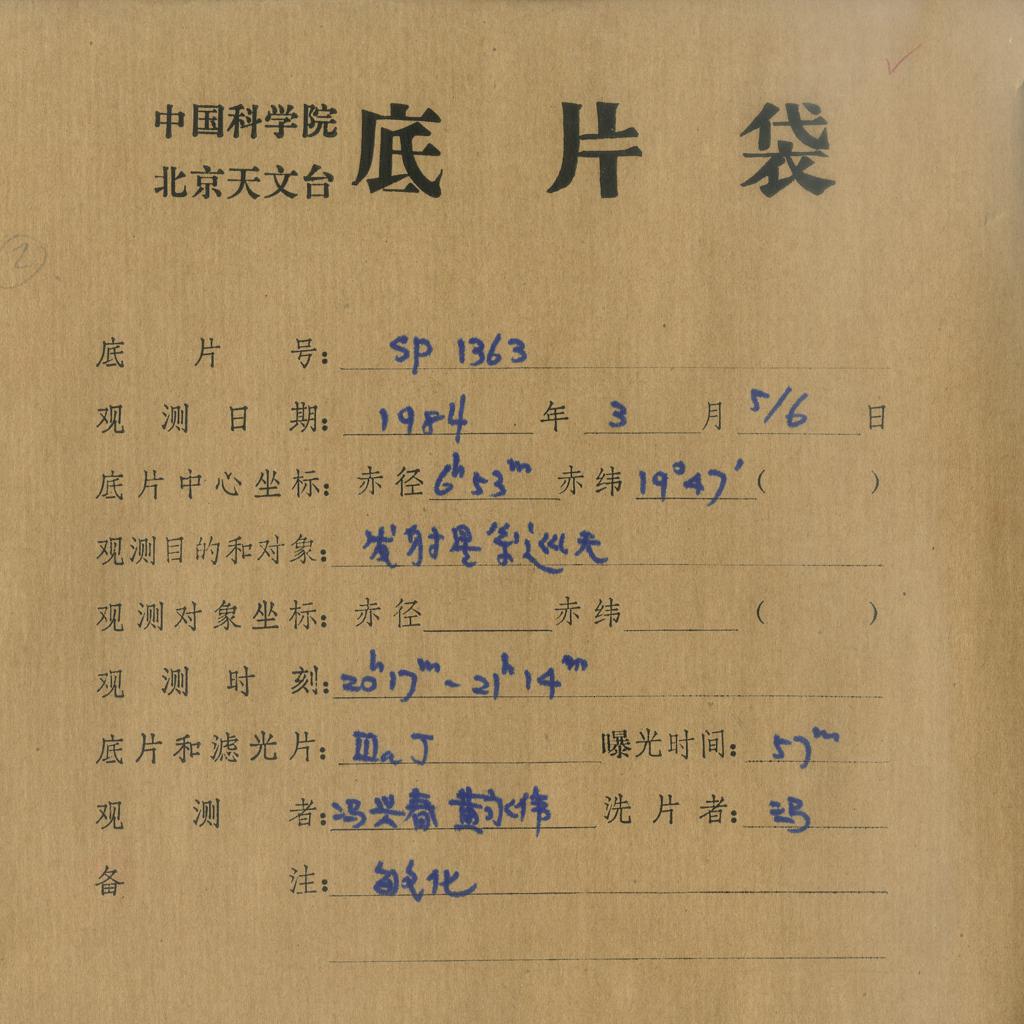 中国科学院
北京天文台
底片袋
②
底片号: SP 1363
观测日期: 1984 年 3 月 5/6 日
底片中心坐标: 赤径 6ʰ53ᵐ 赤纬 19°47′ ( )
观测目的和对象: 发射星系巡天
观测对象坐标: 赤径 赤纬 ( )
观测时刻: 20ʰ17ᵐ - 21ʰ14ᵐ
底片和滤光片: ⅢaJ 曝光时间: 57ᵐ
观测者: 冯兴春 黄永伟 洗片者: 冯
备注: 敏化